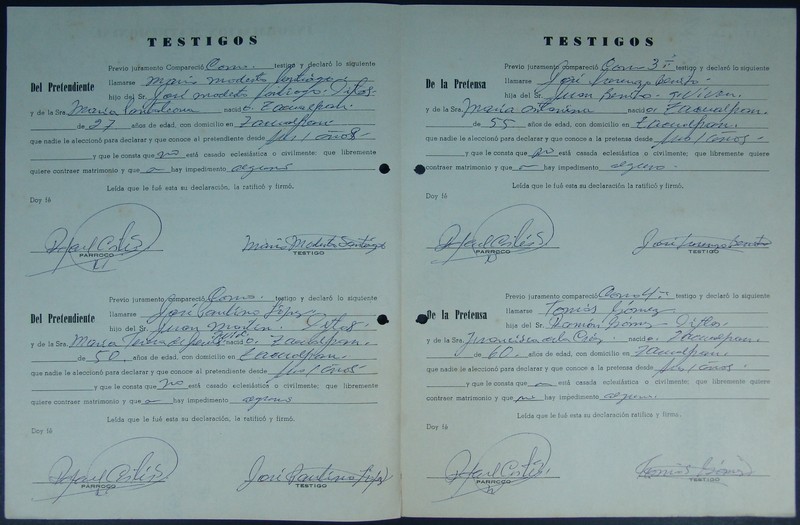 TESTIGOS
Previo juramento Compareció Como testigo y declaró lo siguiente
Del Pretendiente
llamarse Mario Modesto Santiago
hijo del Sr. José modesto Santiago
y de la Sra. María nació Zacualpan
de 27 años de edad, con domicilio en Zacualpan
que nadie le aleccionó para declarar y que conoce al pretendiente desde sus años
y que le consta que no está casado eclesiástica o civilmente; que libremente
quiere contraer matrimonio y que hay impedimento alguno
Leída que le fué esta su declaración, la ratificó y firmó.
Doy fé
Rafael Cortés
PARROCO
Mario Modesto Santiago
TESTIGO
Previo juramento compareció Como testigo y declaró lo siguiente
Del Pretendiente
llamarse José Paulino López
hijo del Sr. Juan Martín
y de la Sra. María Zacualpan
de 50 años de edad, con domicilio en Zacualpan
que nadie le aleccionó para declarar y que conoce al pretendiente desde sus años
y que le consta que no está casado eclesiástica o civilmente; que libremente
quiere contraer matrimonio y que hay impedimento alguno
Leída que le fué esta su declaración, la ratificó y firmó.
Doy fé
Rafael Cortés
PARROCO
José Paulino López
TESTIGO
TESTIGOS
Previo juramento compareció Como 3º testigo y declaró lo siguiente
De la Pretensa
llamarse José Lorenzo Benito
hijo del Sr. Juan Benito
y de la Sra. María Antonina nació Zacualpan
de 55 años de edad, con domicilio en Zacualpan
que nadie le aleccionó para declarar y que conoce a la pretensa desde sus años
y que le consta que no está casado eclesiástica o civilmente; que libremente quiere
contraer matrimonio y que hay impedimento alguno
Leída que le fué esta su declaración la ratificó y firmó.
Doy fé
Rafael Cortés
PARROCO
José Lorenzo Benito
TESTIGO
Previo juramento compareció Como 4º testigo y declaró lo siguiente
De la Pretensa
llamarse Tomás Gómez
hijo del Sr. Ramón Gómez
y de la Sra. Francisca de la Cruz nació Zacualpan
de 60 años de edad, con domicilio en Zacualpan
que nadie le aleccionó para declarar y que conoce al pretendiente desde sus años
y que le consta que está casado eclesiástica o civilmente; que libremente quiere
contraer matrimonio y que no hay impedimento alguno
Leída que le fué esta su declaración ratifica y firmó.
Doy fé
Rafael Cortés
PARROCO
Tomás Gómez
TESTIGO